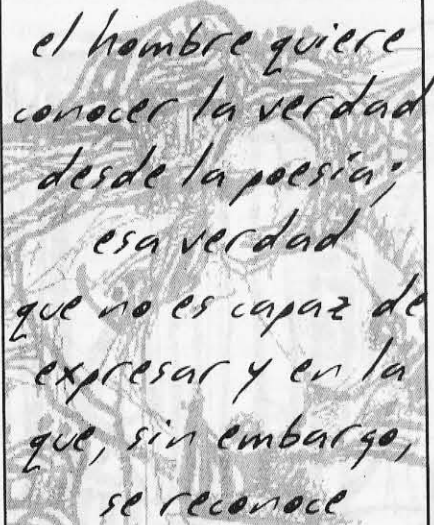 el hombre quiere
conocer la verdad
desde la poesía;
esa verdad
que no es capaz de
expresar y en la
que, sin embargo,
se reconoce